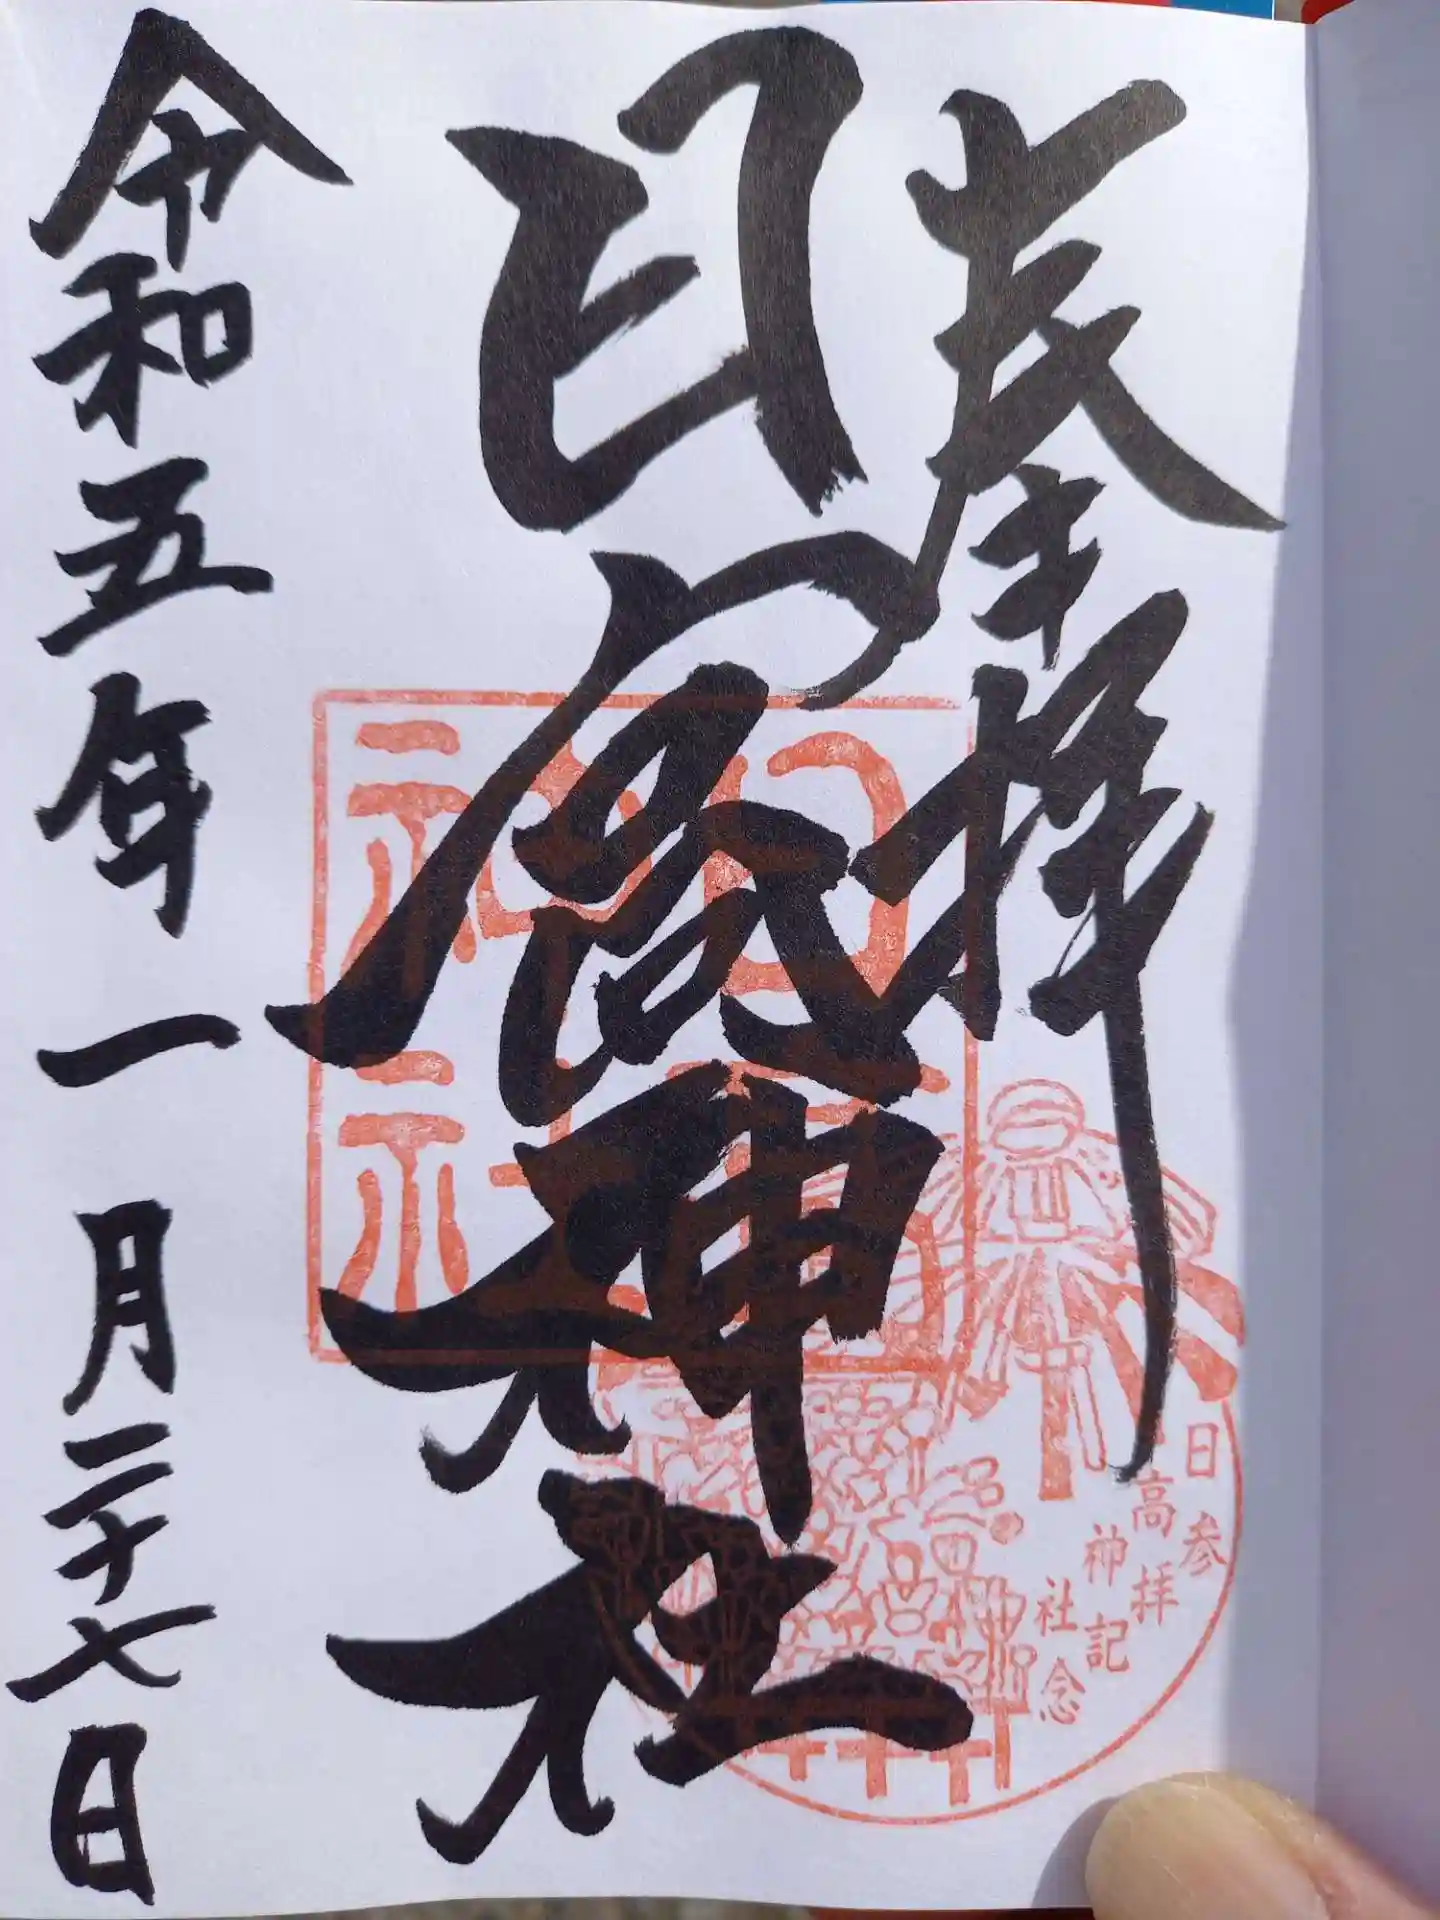 奉拝
日高神社
令和五年一月二十七日
日高神社
日高神社
参拝記念